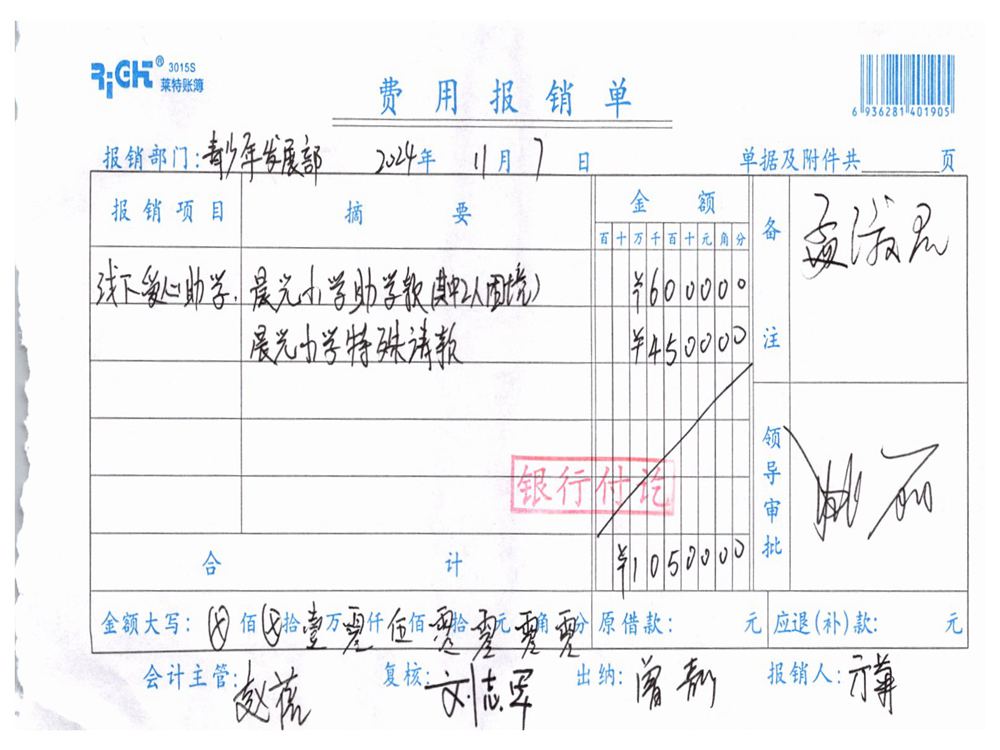 RiCH® 3015S
莱特账簿
费用报销单
6 936281 401905
报销部门:青少年发展部 2024年 11月 7日 单据及附件共 页
报销项目 摘要 金额 备注
百十万千百十元角分
线下爱心助学. 晨光小学助学款(其中2人困境) ¥600000
晨光小学特殊请款 ¥450000
银行付讫
领导审批
合计 ¥1050000
金额大写: 佰 拾壹万零仟伍佰零拾零元零角零分 原借款: 元 应退(补)款: 元
会计主管: 复核:刘志军 出纳: 报销人: